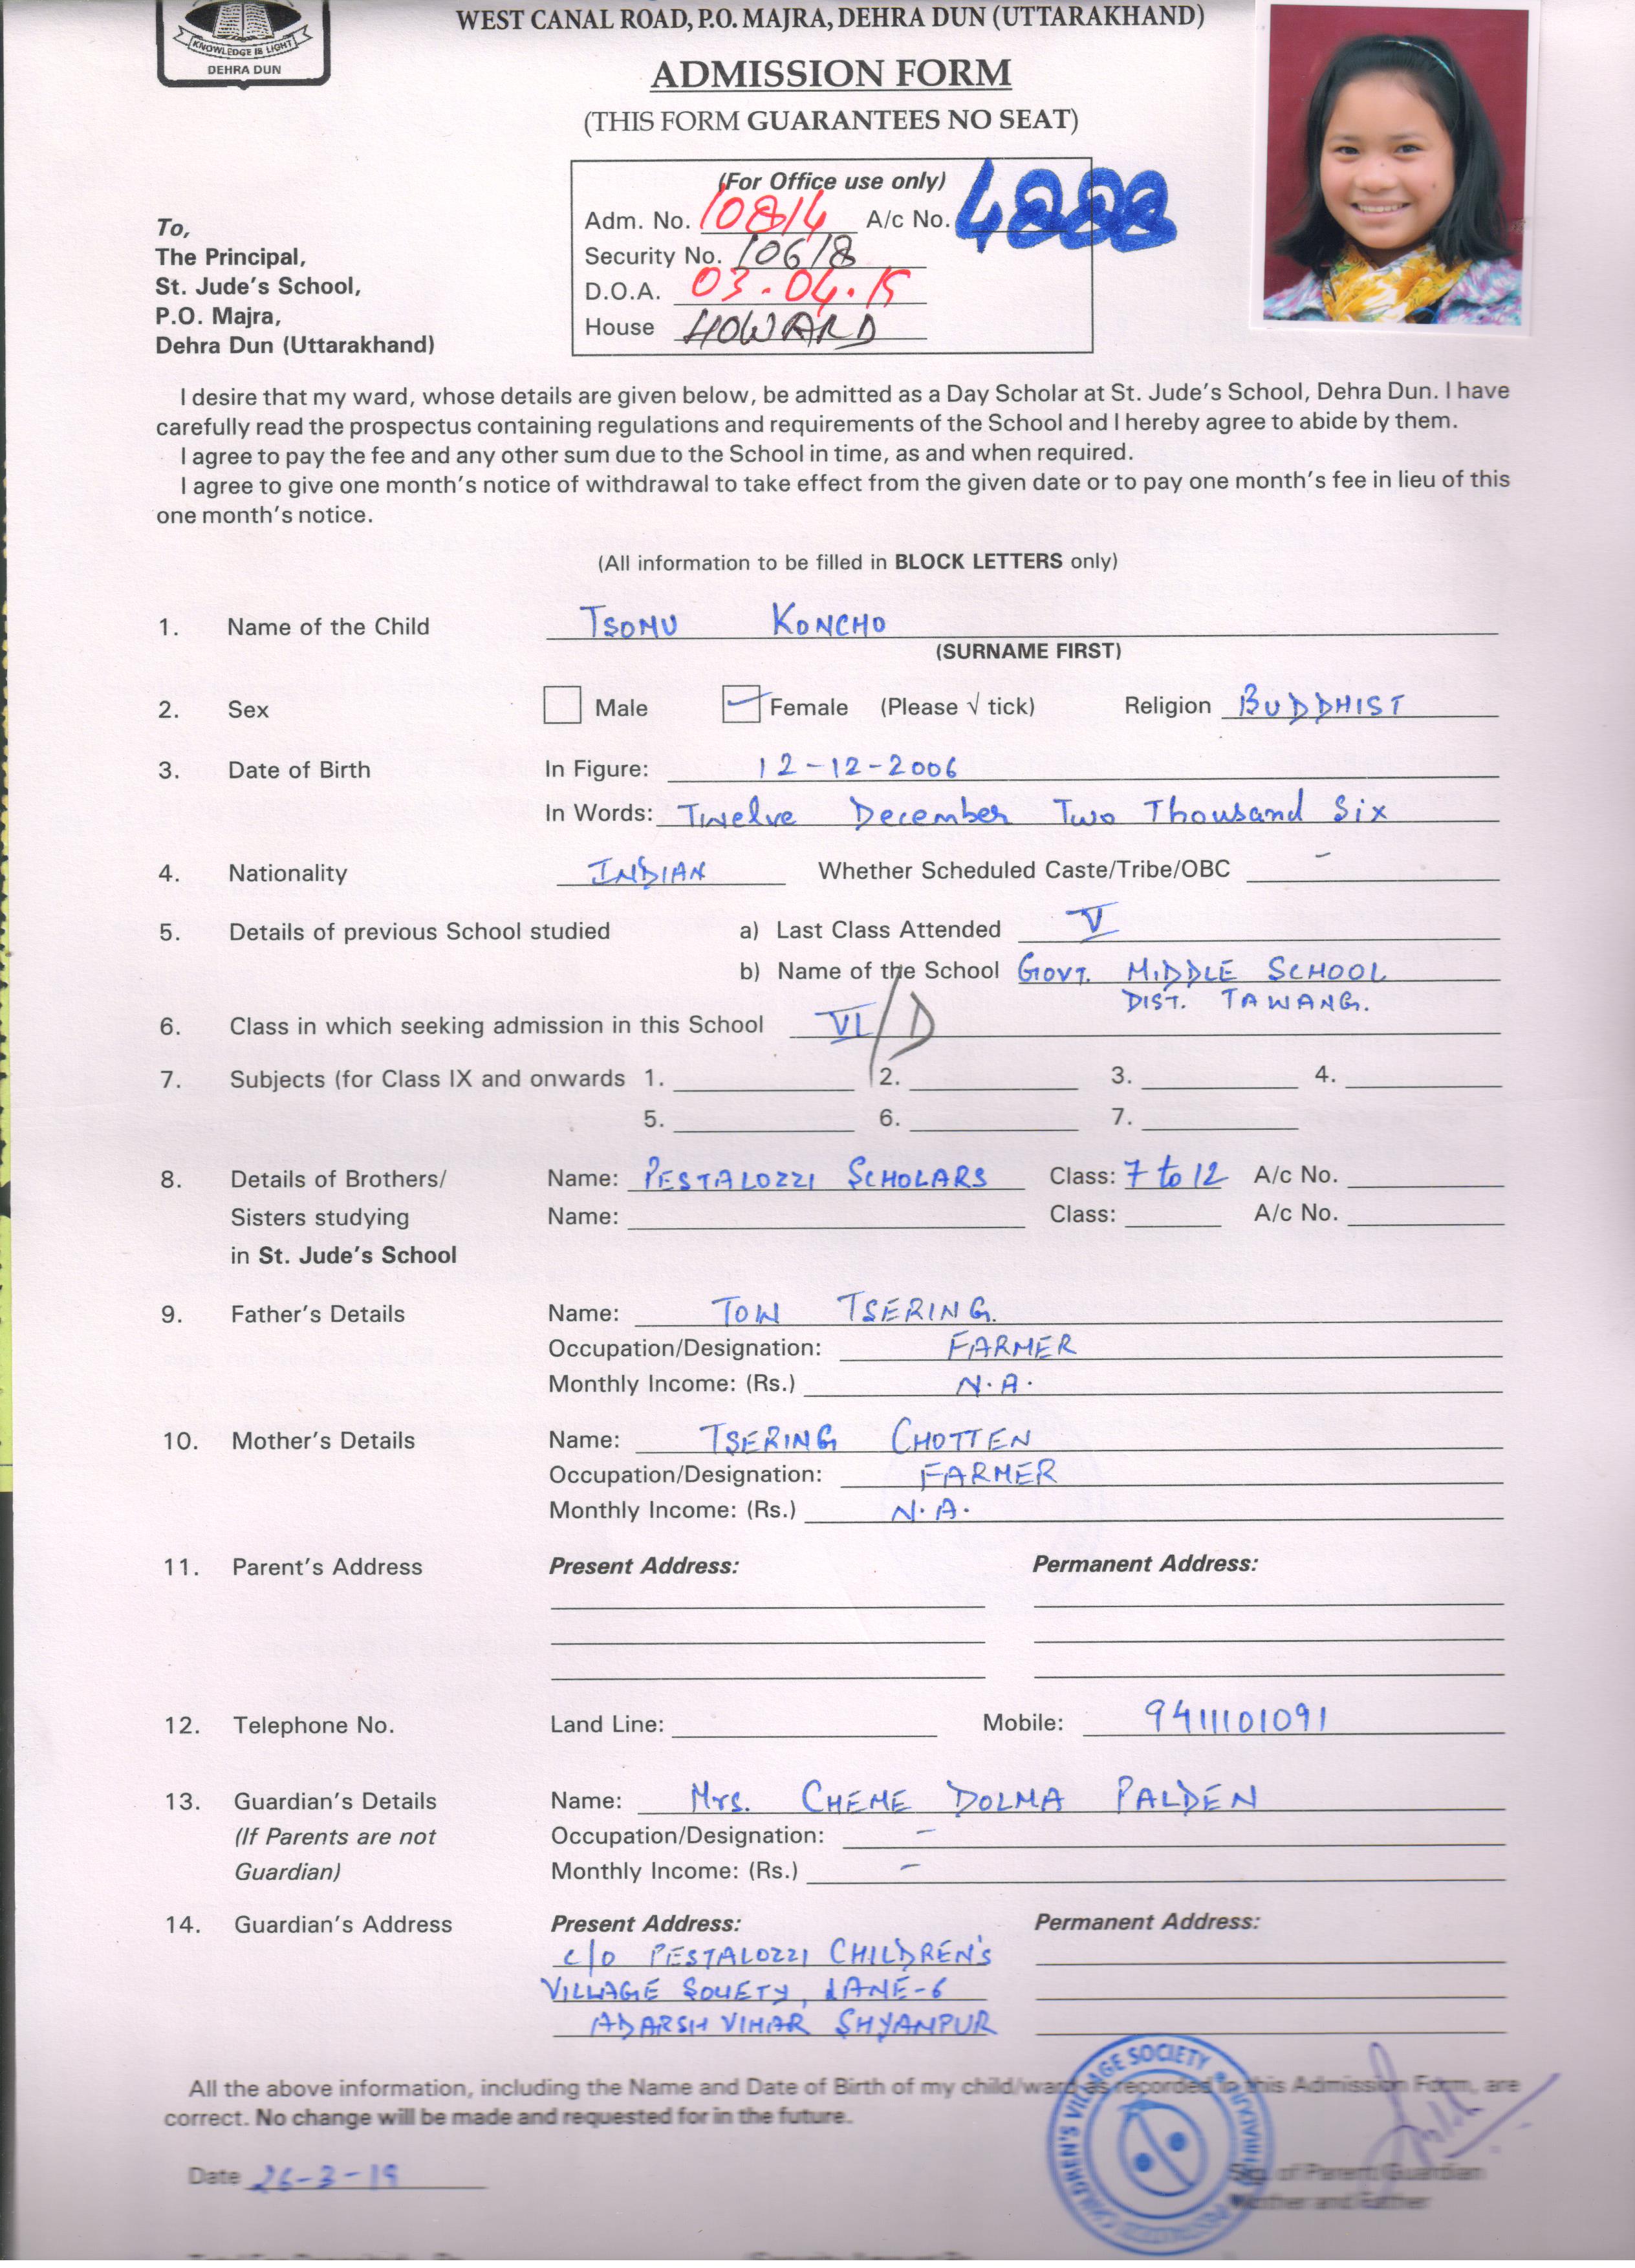 KNOWLEDGE IS LIGHT
DEHRA DUN
WEST CANAL ROAD, P.O. MAJRA, DEHRA DUN (UTTARAKHAND)
ADMISSION FORM
(THIS FORM GUARANTEES NO SEAT)
(For Office use only)
Adm. No. 10814 A/c No. 4888
Security No. 10618
D.O.A. 03.04.19
House HOWARD
To,
The Principal,
St. Jude's School,
P.O. Majra,
Dehra Dun (Uttarakhand)
I desire that my ward, whose details are given below, be admitted as a Day Scholar at St. Jude's School, Dehra Dun. I have
carefully read the prospectus containing regulations and requirements of the School and I hereby agree to abide by them.
I agree to pay the fee and any other sum due to the School in time, as and when required.
I agree to give one month's notice of withdrawal to take effect from the given date or to pay one month's fee in lieu of this
one month's notice.
(All information to be filled in BLOCK LETTERS only)
1. Name of the Child TSOMU KONCHO
(SURNAME FIRST)
2. Sex Male Female (Please √ tick) Religion BUDDHIST
3. Date of Birth In Figure: 12-12-2006
In Words: Twelve December Two Thousand Six
4. Nationality INDIAN Whether Scheduled Caste/Tribe/OBC -
5. Details of previous School studied a) Last Class Attended V
b) Name of the School GOVT. MIDDLE SCHOOL
DIST. TAWANG.
6. Class in which seeking admission in this School VI/D
7. Subjects (for Class IX and onwards 1. 2. 3. 4.
5. 6. 7.
8. Details of Brothers/ Name: PESTALOZZI SCHOLARS Class: 7 to 12 A/c No.
Sisters studying Name: Class: A/c No.
in St. Jude's School
9. Father's Details Name: TOW TSERING.
Occupation/Designation: FARMER
Monthly Income: (Rs.) N.A.
10. Mother's Details Name: TSERING CHOTTEN
Occupation/Designation: FARMER
Monthly Income: (Rs.) N.A.
11. Parent's Address Present Address: Permanent Address:
12. Telephone No. Land Line: Mobile: 9411101091
13. Guardian's Details Name: Mrs. CHEME DOLMA PALDEN
(If Parents are not Occupation/Designation: -
Guardian) Monthly Income: (Rs.) -
14. Guardian's Address Present Address: Permanent Address:
c/o PESTALOZZI CHILDREN'S
VILLAGE SOCIETY, LANE-6
ADARSH VIHAR SHYAMPUR
All the above information, including the Name and Date of Birth of my child/ward as recorded in this Admission Form, are
correct. No change will be made and requested for in the future.
CHILDREN'S VILLAGE SOCIETY
Date 26-3-19
Sig. of Parent/Guardian
Mother and Father